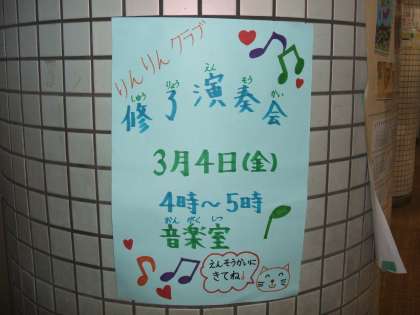 りんりんクラブ
しゅう りょう えん そう かい
修了演奏会
3月4日(金)
4時〜5時
おん がく しつ
音楽室
えんそうかいに
きてね♩